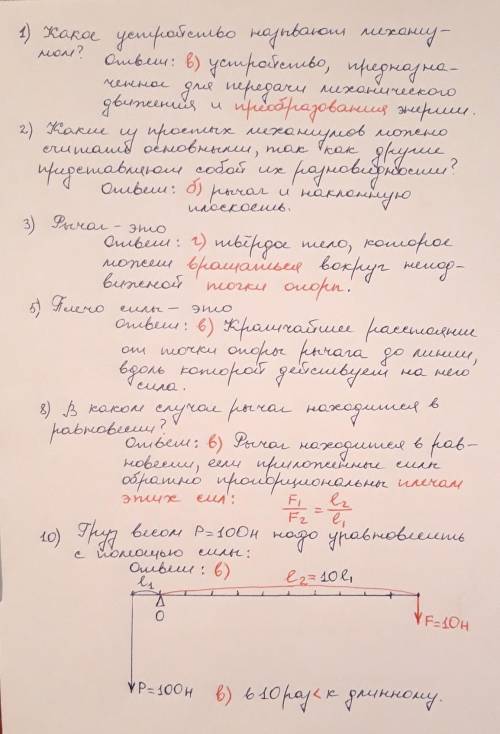 1) Какое устройство называют механиз-
мом?
Ответ: в) устройство, предназна-
ченное для передачи механического
движения и преобразования энергии.
2) Какие из простых механизмов можно
считать основными, так как другие
представляют собой их разновидности?
Ответ: б) рычаг и наклонную
плоскость.
3) Рычаг - это
Ответ: г) твёрдое тело, которое
может вращаться вокруг непод-
вижной точки опоры.
5) Плечо силы - это
ответ: в) Кратчайшее расстояние
от точки опоры рычага до линии,
вдоль которой действует на него
сила.
8) В каком случае рычаг находится в
равновесии?
Ответ: в) Рычаг находится в рав-
новесии, если приложенные силы
обратно пропорциональны плечам
этих сил: F₁/F₂ = l₂/l₁
10) Груз весом P=100н надо уравновесить
с помощью силы:
Ответ: в)
l₁ l₂=10l₁
O
F=10н
P=100н в) в 10 раз < к длинному.